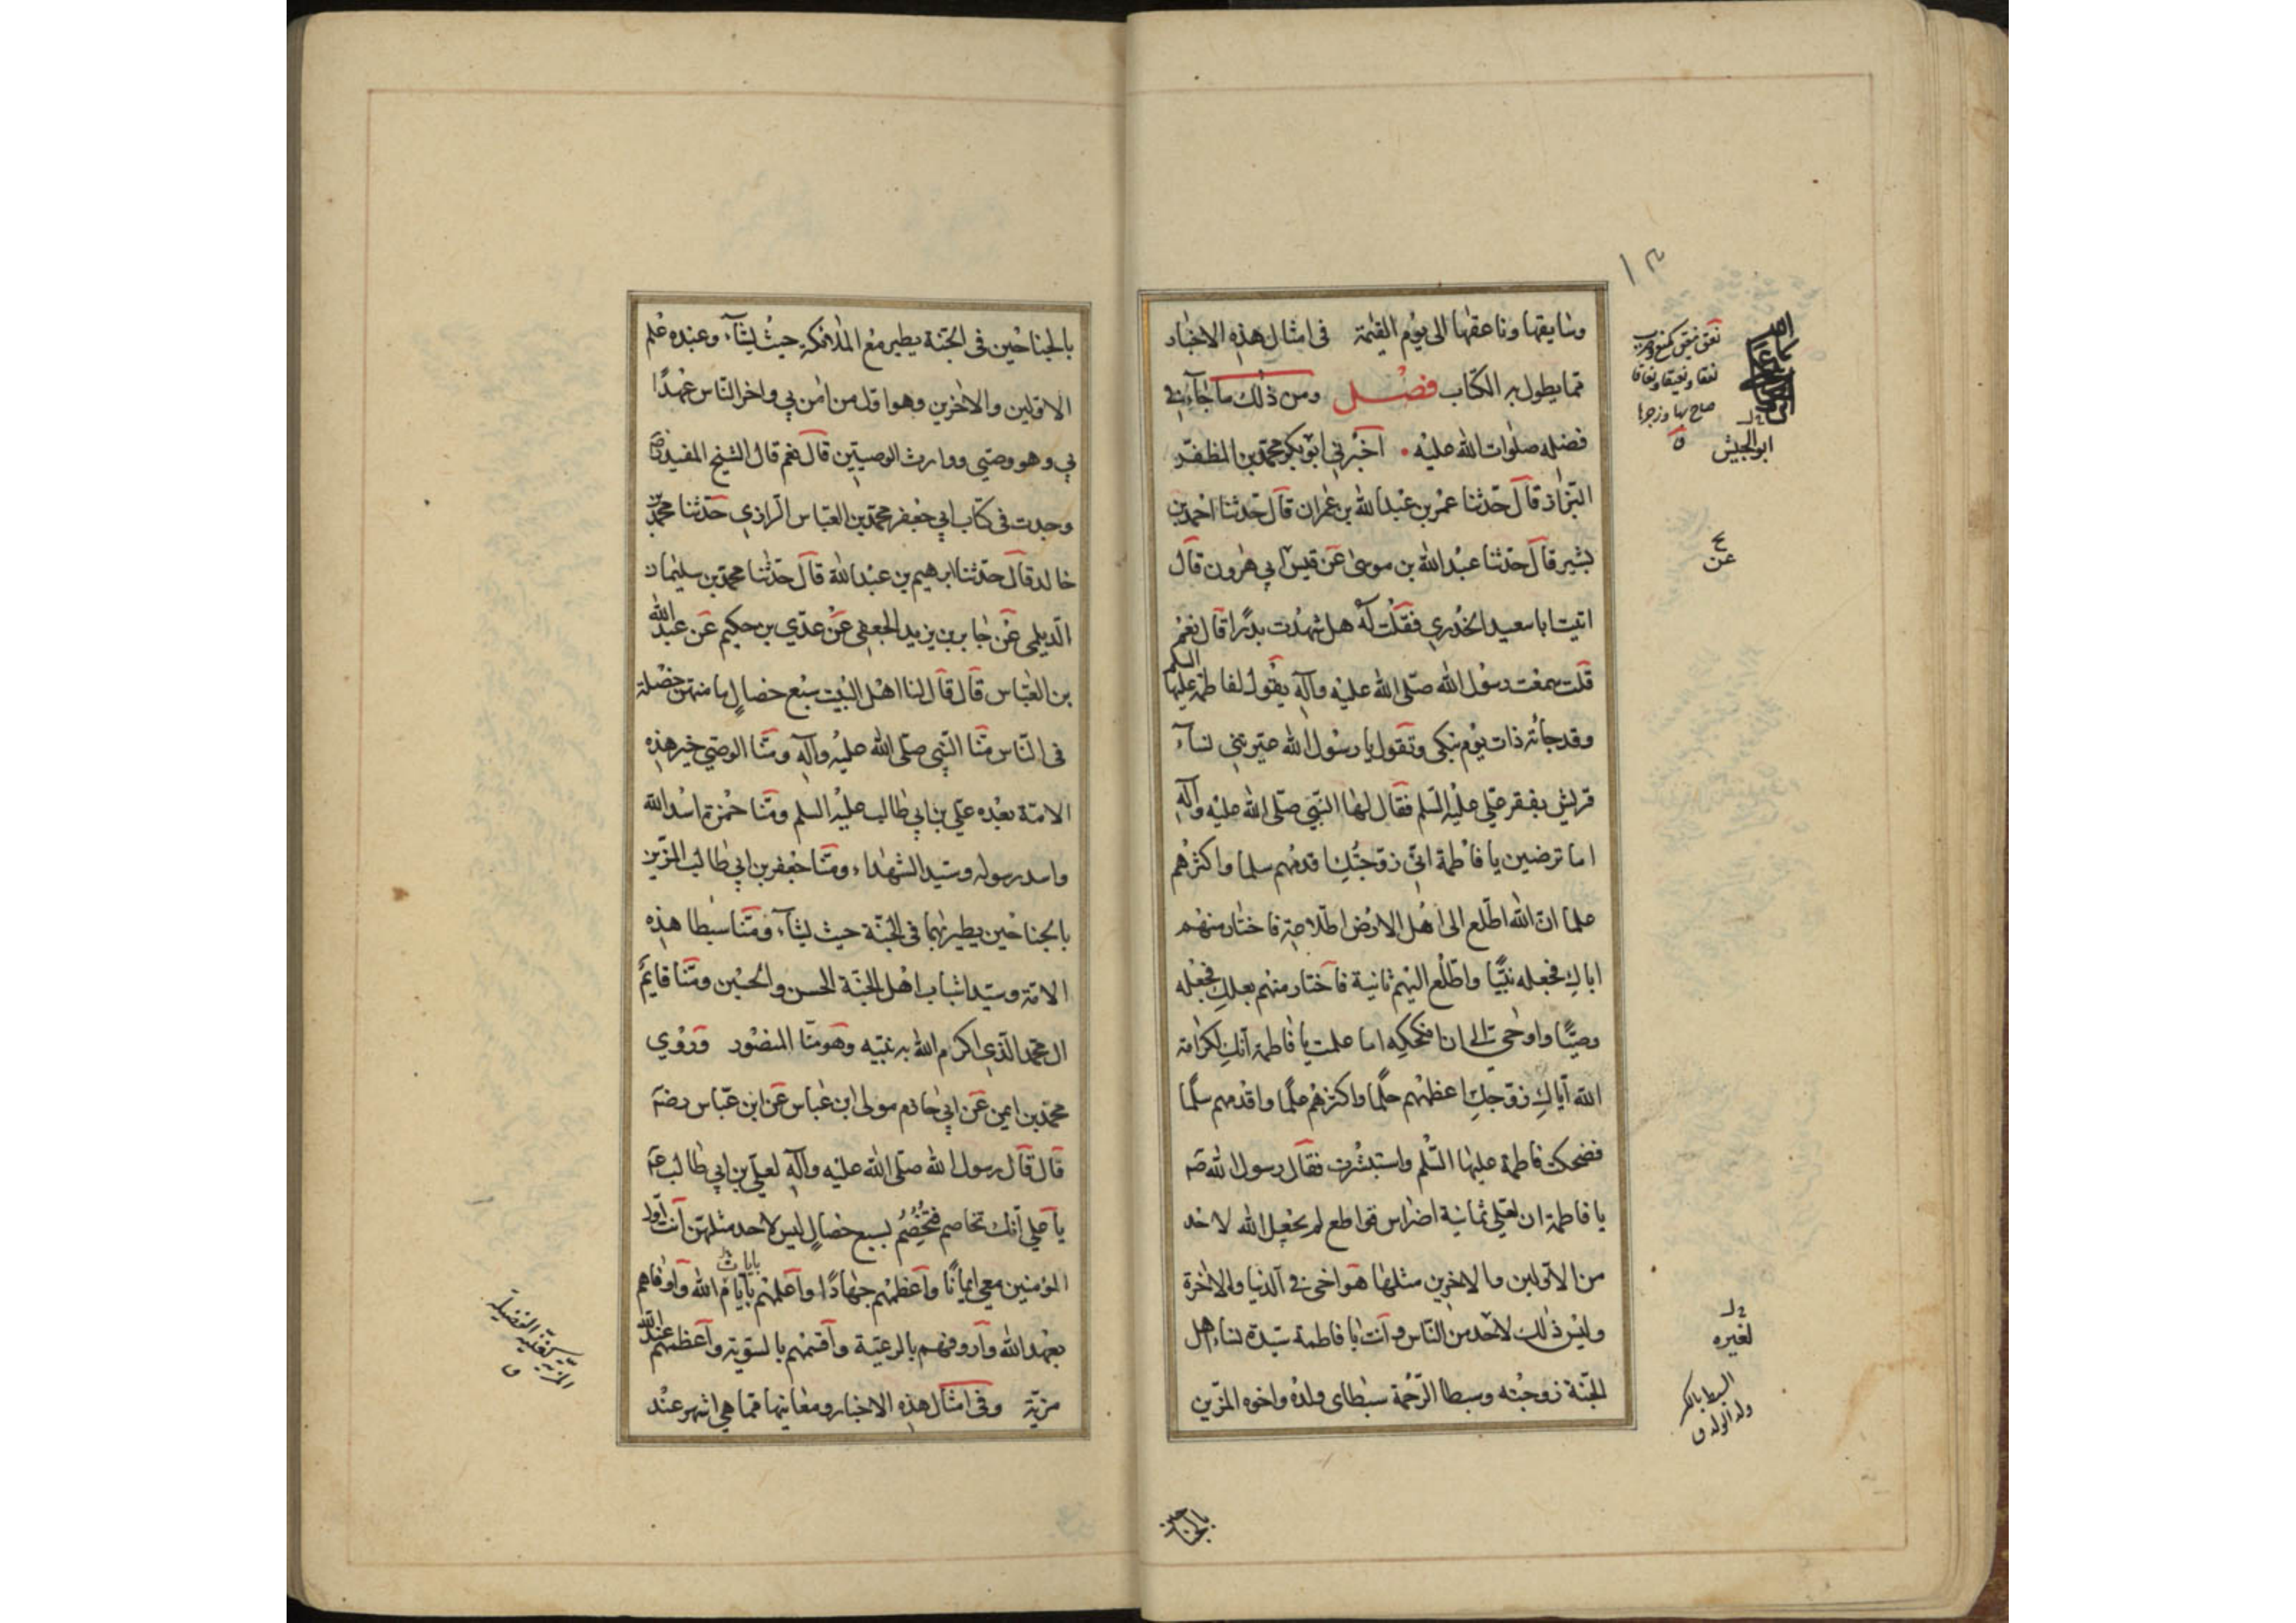 وسايقها وناعقها الى يوم القيمة في امثال هذه الاخبار
مما يطول به الكتاب فصل ومن ذلك ما جاء في
فضله صلوات الله عليه اخبرني ابو بكر محمد بن المظفر
البزاز قال حدثنا عمر بن عبد الله بن عمران قال حدثنا احمد بن
بشير قال حدثنا عبد الله بن موسى عن قيس ابي هرون قال
اتيت ابا سعيد الخدري فقلت له هل شهدت بدرا قال نعم
قلت سمعت رسول الله صلى الله عليه وآله يقول لفاطمة عليها السلم
وقد جائته ذات يوم تبكى وتقول يا رسول الله عيرتني نساء
قريش بفقر علي عليه السلم فقال لها النبي صلى الله عليه وآله
اما ترضين يا فاطمة اني زوجتك اقدمهم سلما واكثرهم
علما ان الله اطلع الى اهل الارض اطلاعة فاختار منهم
اباك فجعله نبيا واطلع اليهم ثانية فاختار منهم بعلك فجعله
وصيا واوحى الي ان انكحكه اما علمت يا فاطمة انك لكرامة
الله اياك زوجك اعظمهم حلما واكثرهم علما واقدمهم سلما
فضحكت فاطمة عليها السلم واستبشرت فقال رسول الله صه
يا فاطمة ان لعلي ثمانية اضراس قواطع لم يجعل الله لاحد
من الاولين والاخرين مثلها هو اخي في الدنيا والاخرة
وليس ذلك لاحد من الناس وانت يا فاطمة سيدة نساء اهل
الجنة زوجته وسبطا الرحمة سبطاى ولده واخوه المزين
نعق ينعق كمنع وضرب
نعقا ونعيقا ونعاقا
صاح بها وزجرها
ابو الجيش
عن
لغيره
السبط بالكسر
ولد الولد ق
بالجناحين
بالجناحين في الجنة يطير مع الملائكة حيث يشاء وعنده علم
الاولين والاخرين وهو اول من امن بي واخر الناس عهدا
بي وهو وصيي ووارث الوصيين قال نعم قال الشيخ المفيد
وجدت في كتاب ابي جعفر محمد بن العباس الرازي حدثنا محمد بن
خالد قال حدثنا ابرهيم بن عبد الله قال حدثنا محمد بن سليمان
الديلمي عن جابر بن يزيد الجعفي عن عدي بن حكيم عن عبد الله
بن العباس قال قال لنا اهل البيت سبع خصال ما منهن خصلة
في الناس منا النبي صلى الله عليه وآله ومنا الوصي خير هذه
الامة بعده علي بن ابي طالب عليه السلم ومنا حمزة اسد الله
واسد رسوله وسيد الشهداء ومنا جعفر بن ابي طالب المزين
بالجناحين يطير بهما في الجنة حيث يشاء ومنا سبطا هذه
الامة وسيدا شباب اهل الجنة الحسن والحسين ومنا قايم
ال محمد الذي اكرم الله به نبيه وهو منا المنصور وروي
محمد بن ايمن عن ابي حازم مولى ابن عباس عن ابن عباس رضه
قال قال رسول الله صلى الله عليه وآله لعلي بن ابي طالب عه
يا علي انك تخاصم فتخصم بسبع خصال ليس لاحد مثلهن انت اول
المؤمنين معي ايمانا واعظمهم جهادا واعلمهم بايام الله واوفاهم
بايات
بعهد الله واروفهم بالرعية واقسمهم بالسوية واعظمهم عند الله
مزية وفي امثال هذه الاخبار ومعانيها مما هي اشهر عند
المزية كغنية الفضيلة
ق